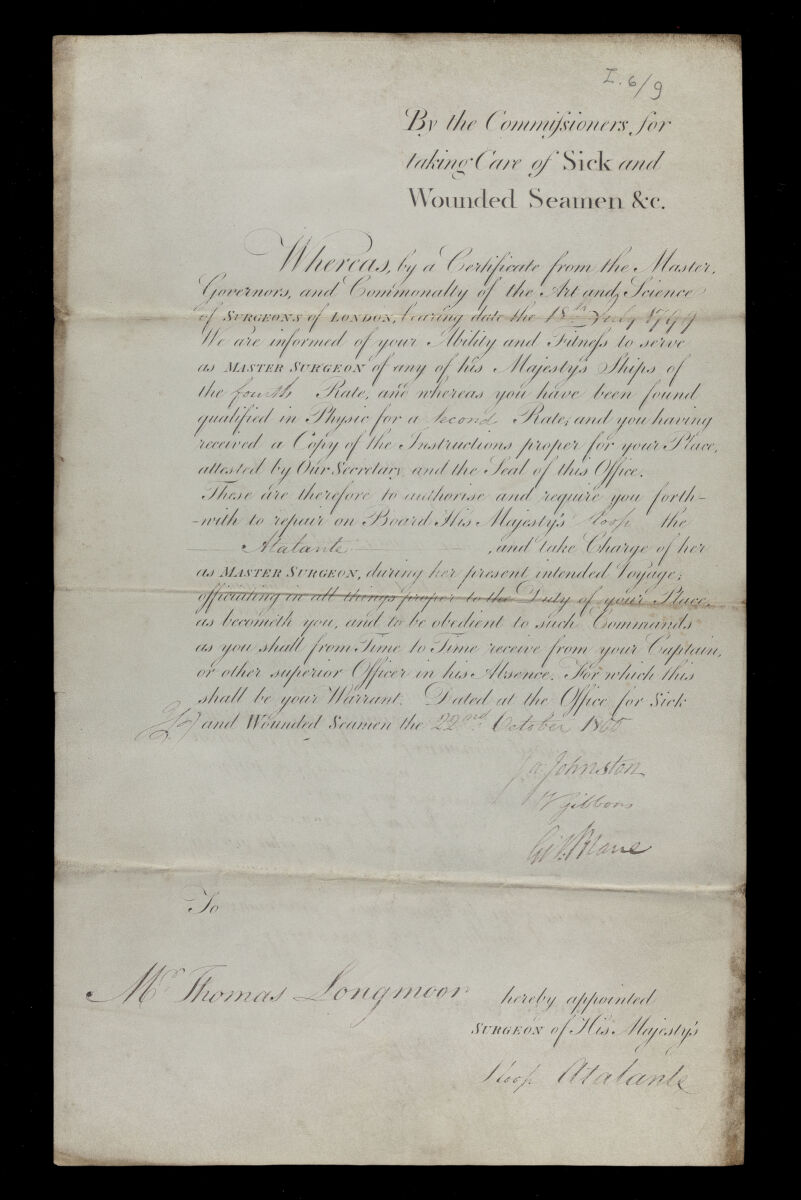 I. 6/9
By the Commiſsioners for
taking Care of Sick and
Wounded Seamen &c.
Whereas, by a Certificate from the Master,
Governors, and Commonalty of the Art and Science
of Surgeons of London, bearing date the 18th July 1799
We are informed of your Ability and Fitneſs to serve
as Master Surgeon of any of his Majesty's Ships of
the fourth Rate, and whereas you have been found
qualified in Physic for a second Rate; and you having
received a Copy of the Instructions proper for your Place,
attested by Our Secretary and the Seal of this Office.
These are therefore to authorise and require you forth-
-with to repair on Board His Majesty's Sloop the
Atalante, and take Charge of her
as Master Surgeon, during her present intended Voyage;
officiating in all things proper to the Duty of your Place,
as becometh you, and to be obedient to such Commands
as you shall from Time to Time receive from your Captain,
or other superior Officer in his Absence. For which this
shall be your Warrant. Dated at the Office for Sick
and Wounded Seamen the 22nd October 1800
Ja Johnston
W Gibbons
Gilb. Blane
To
Mr Thomas Longmoor hereby appointed
Surgeon of His Majesty's
Sloop Atalante